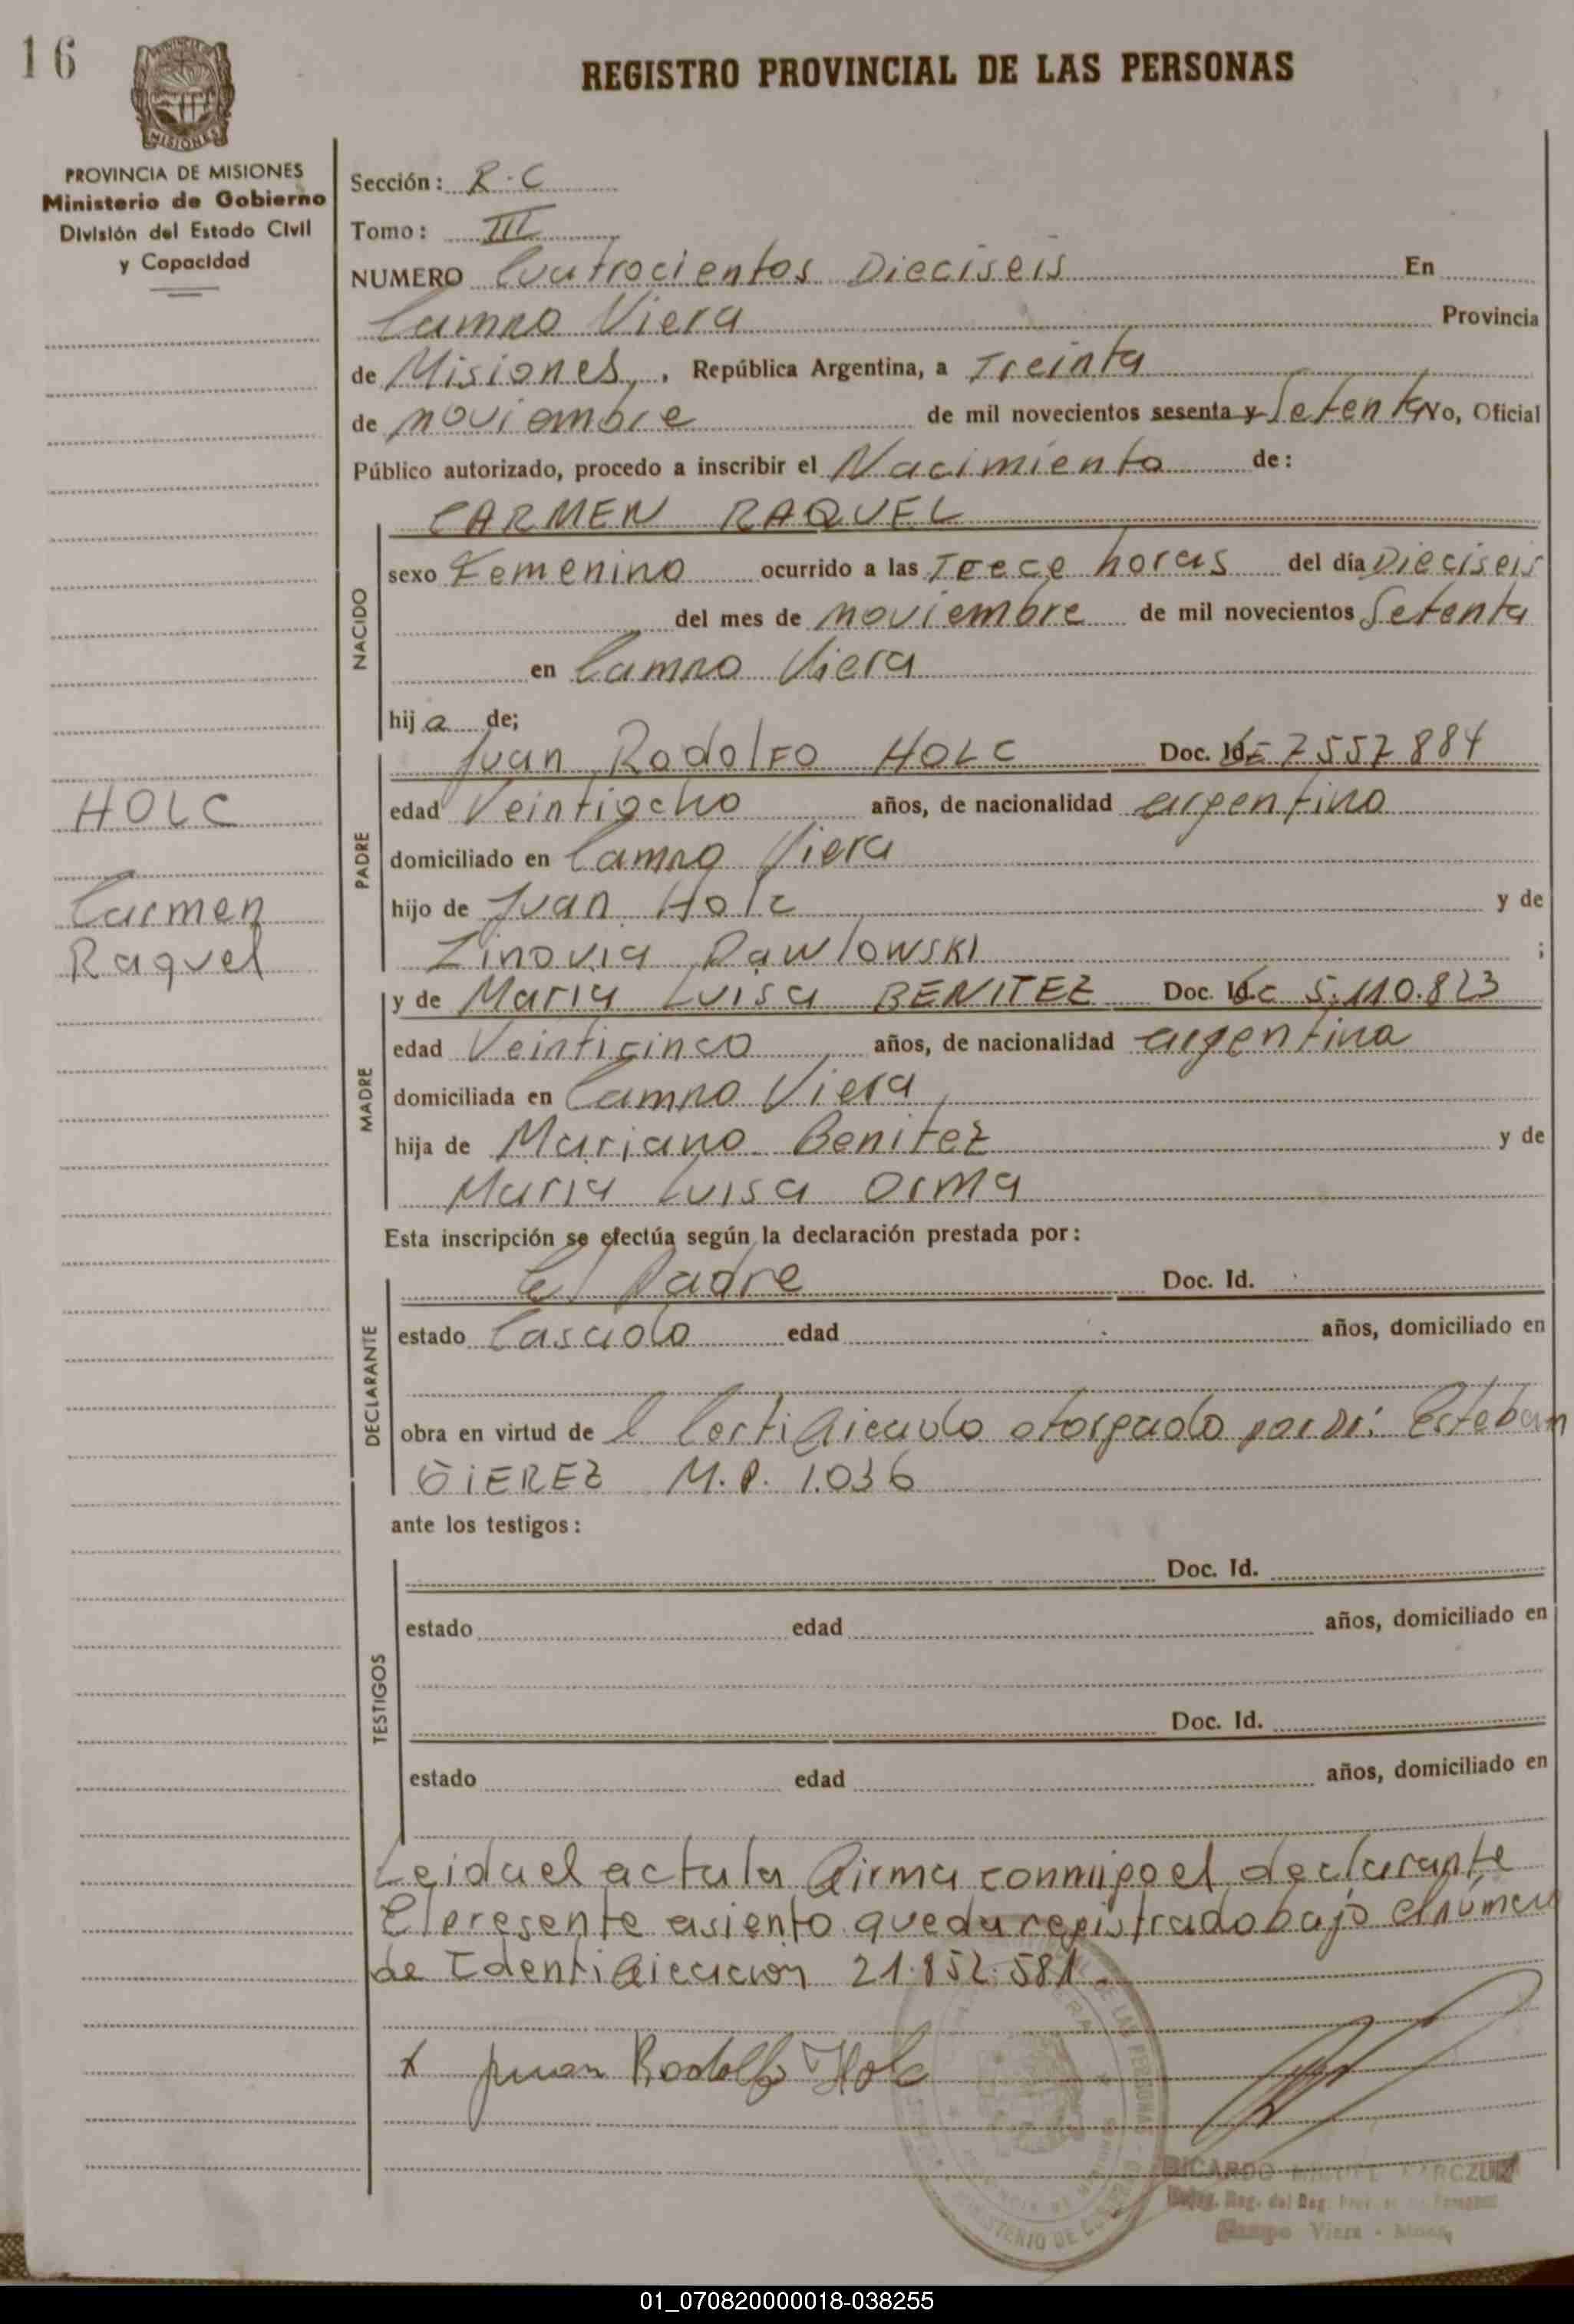 16
REGISTRO PROVINCIAL DE LAS PERSONAS
MISIONES
PROVINCIA DE MISIONES
Ministerio de Gobierno
División del Estado Civil
y Capacidad
Sección: R.C
Tomo: III
NUMERO Cuatrocientos Dieciseis En
Campo Viera Provincia
de Misiones, . República Argentina, a Treinta
de noviembre de mil novecientos sesenta y Setenta Yo, Oficial
Público autorizado, procedo a inscribir el Nacimiento de:
CARMEN RAQUEL
NACIDO
sexo Femenino ocurrido a las Trece horas del día Dieciseis
del mes de noviembre de mil novecientos Setenta
en Campo Viera
hija de;
Juan Rodolfo HOLC Doc. Id. LE 7557884
PADRE
edad Veintiocho años, de nacionalidad argentino
domiciliado en Campo Viera
hijo de Juan Holc y de
Zinovia Pawlowski ;
HOLC
Carmen
Raquel
y de Maria Luisa BENITEZ Doc. Id. LC 5.110.823
MADRE
edad Veinticinco años, de nacionalidad argentina
domiciliada en Campo Viera
hija de Mariano Benitez y de
Maria Luisa Orma
Esta inscripción se efectúa según la declaración prestada por:
El Padre Doc. Id.
DECLARANTE
estado Casado edad años, domiciliado en
obra en virtud de l Certificado otorgado por Dr: Esteban
GIEREZ M.P. 1.036
ante los testigos:
Doc. Id.
TESTIGOS
estado edad años, domiciliado en
Doc. Id.
estado edad años, domiciliado en
Leida el acta la firma conmigo el declarante
El presente asiento queda registrado bajo el número
de Identificacion 21.852.581.
x Juan Rodolfo Holc
RICARDO
Campo Viera
01_070820000018-038255